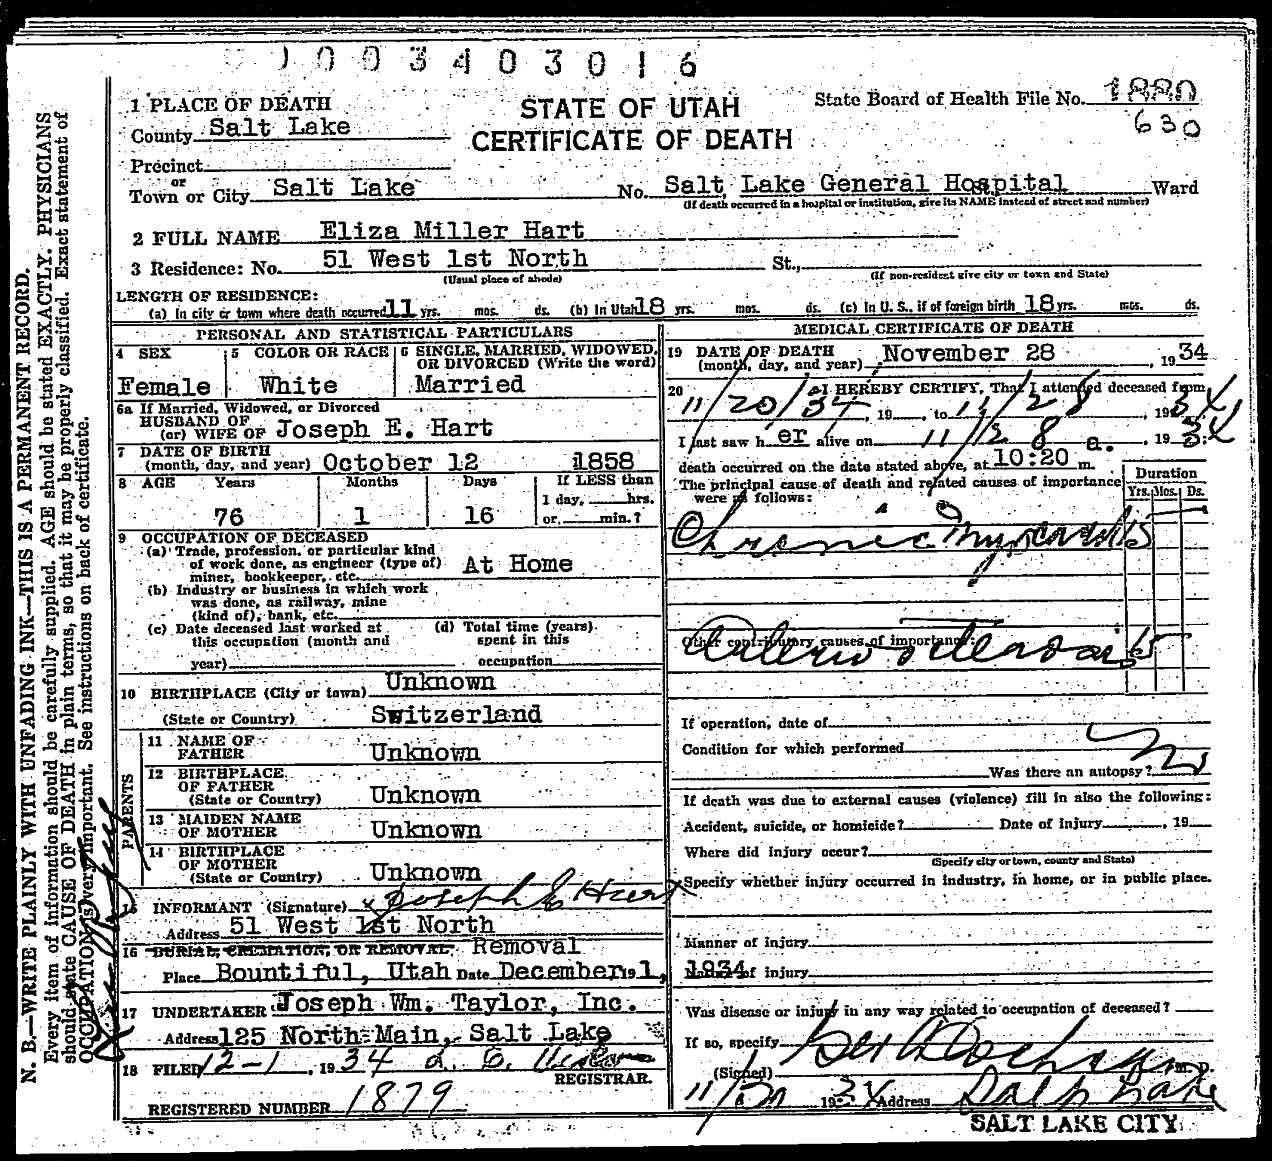 1003403016
STATE OF UTAH
CERTIFICATE OF DEATH
State Board of Health File No. 1880
630
1 PLACE OF DEATH
County Salt Lake
Precinct
or
Town or City Salt Lake No. Salt Lake General Hospital Ward
(If death occurred in a hospital or institution, give its NAME instead of street and number)
2 FULL NAME Eliza Miller Hart
3 Residence: No. 51 West 1st North St.,
(Usual place of abode) (If non-resident give city or town and State)
LENGTH OF RESIDENCE:
(a) In city or town where death occurred 11 yrs. mos. ds. (b) In Utah 18 yrs. mos. ds. (c) In U. S., if of foreign birth 18 yrs. mos. ds.
PERSONAL AND STATISTICAL PARTICULARS
4 SEX
Female
5 COLOR OR RACE
White
6 SINGLE, MARRIED, WIDOWED, OR DIVORCED (Write the word)
Married
6a If Married, Widowed, or Divorced
HUSBAND OF
(or) WIFE OF Joseph E. Hart
7 DATE OF BIRTH
(month, day, and year) October 12 1858
8 AGE Years Months Days If LESS than
1 day, hrs.
76 1 16 or, min.?
9 OCCUPATION OF DECEASED
(a) Trade, profession, or particular kind
of work done, as engineer (type of)
miner, bookkeeper, etc. At Home
(b) Industry or business in which work
was done, as railway, mine
(kind of), bank, etc.
(c) Date deceased last worked at
this occupation (month and
year)
(d) Total time (years)
spent in this
occupation
10 BIRTHPLACE (City or town) Unknown
(State or Country) Switzerland
PARENTS
11 NAME OF
FATHER Unknown
12 BIRTHPLACE
OF FATHER
(State or Country) Unknown
13 MAIDEN NAME
OF MOTHER Unknown
14 BIRTHPLACE
OF MOTHER
(State or Country) Unknown
15 INFORMANT (Signature) x Joseph E Hart
Address 51 West 1st North
16 BURIAL, CREMATION, OR REMOVAL Removal
Place Bountiful, Utah Date December 1, 1934
17 UNDERTAKER Joseph Wm. Taylor, Inc.
Address 125 North Main, Salt Lake
18 FILED 12-1, 1934
REGISTRAR.
REGISTERED NUMBER 1879
MEDICAL CERTIFICATE OF DEATH
19 DATE OF DEATH
(month, day, and year) November 28, 1934
20 I HEREBY CERTIFY, That I attended deceased from
11/20/34, 19 , to 11/28, 1934
I last saw her alive on 11/28, 1934
death occurred on the date stated above, at 10:20 a. m.
The principal cause of death and related causes of importance
were as follows:
Duration
Yrs. Mos. Ds.
Chronic Myocarditis 15
Other contributory causes of importance:
Arteriosclerosis 15
If operation, date of
Condition for which performed
Was there an autopsy? No
If death was due to external causes (violence) fill in also the following:
Accident, suicide, or homicide? Date of injury , 19
Where did injury occur?
(Specify city or town, county and State)
Specify whether injury occurred in industry, in home, or in public place.
Manner of injury
Nature of injury
Was disease or injury in any way related to occupation of deceased?
If so, specify
(Signed) M. D.
11/30 1934 Address Salt Lake
SALT LAKE CITY
N. B.—WRITE PLAINLY WITH UNFADING INK—THIS IS A PERMANENT RECORD.
Every item of information should be carefully supplied. AGE should be stated EXACTLY. PHYSICIANS
should state CAUSE OF DEATH in plain terms, so that it may be properly classified. Exact statement of
OCCUPATION is very important. See instructions on back of certificate.